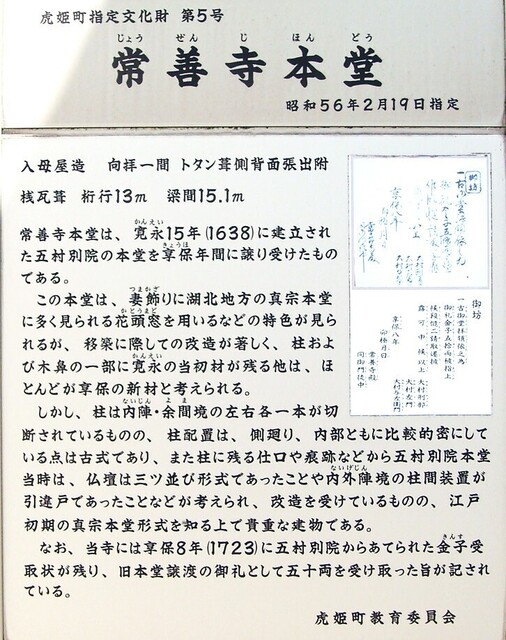 虎姫町指定文化財 第5号
じょう ぜん じ ほん どう
常善寺本堂
昭和56年2月19日指定
入母屋造 向拝一間 トタン葺側背面張出附
桟瓦葺 桁行13m 梁間15.1m
常善寺本堂は、寛永15年(1638)に建立され
た五村別院の本堂を享保年間に譲り受けたもの
である。
この本堂は、妻飾りに湖北地方の真宗本堂
に多く見られる花頭窓を用いるなどの特色が見ら
れるが、移築に際しての改造が著しく、柱およ
び木鼻の一部に寛永の当初材が残る他は、ほ
とんどが享保の新材と考えられる。
しかし、柱は内陣・余間境の左右各一本が切
断されているものの、柱配置は、側廻り、内部ともに比較的密にして
いる点は古式であり、また柱に残る仕口や痕跡などから五村別院本堂
当時は、仏壇は三ツ並び形式であったことや内外陣境の柱間装置が
引違戸であったことなどが考えられ、改造を受けているものの、江戸
初期の真宗本堂形式を知る上で貴重な建物である。
なお、当寺には享保8年(1723)に五村別院からあてられた金子受
取状が残り、旧本堂譲渡の御礼として五十両を受け取った旨が記され
ている。
虎姫町教育委員会
御坊
一古御堂御礼依之為
御礼金子五拾両被指上
享保八年
常善寺殿
同御門徒中